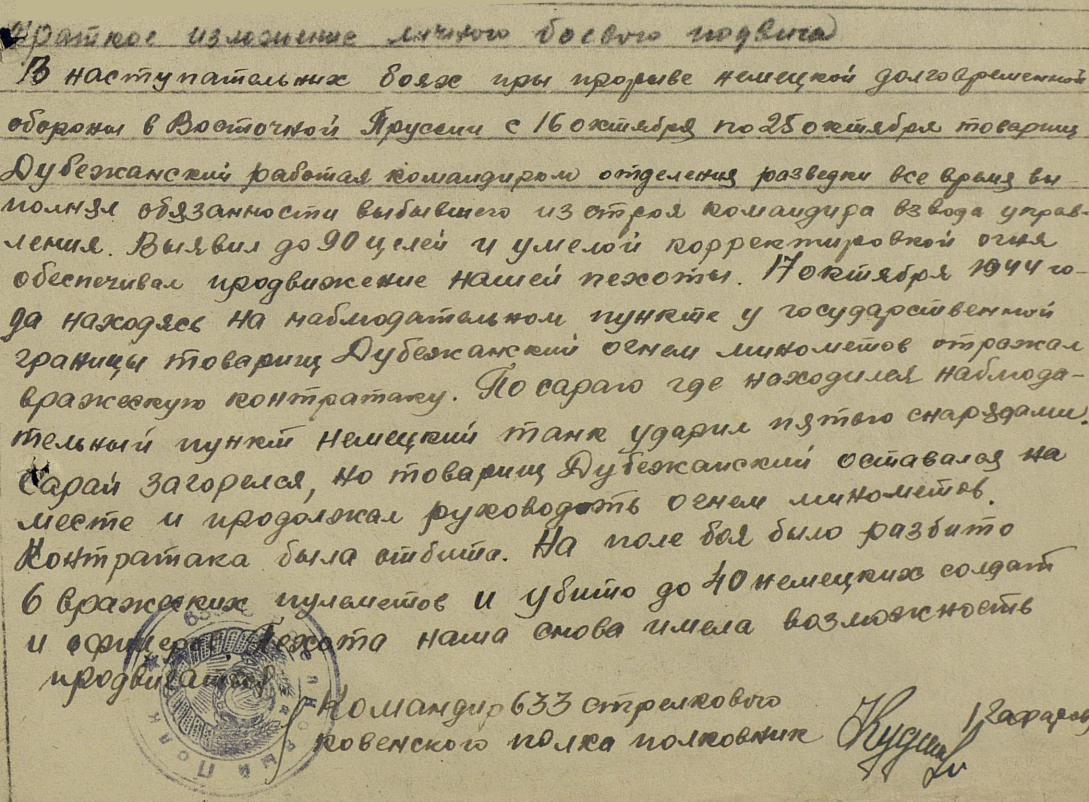 Краткое изложение личного боевого подвига
В наступательных боях при прорыве немецкой долговременной
обороны в Восточной Пруссии с 16 октября по 25 октября товарищ
Дубежанский работая командиром отделения разведки все время вы-
полнял обязанности выбывшего из строя командира взвода управ-
ления. Выявил до 90 целей и умелой корректировкой огня
обеспечивал продвижение нашей пехоты. 17 октября 1944 го-
да находясь на наблюдательном пункте у государственной
границы товарищ Дубежанский огнем минометов отражал
вражескую контратаку. По сараю где находился наблюда-
тельный пункт немецкий танк ударил пятью снарядами.
Сарай загорелся, но товарищ Дубежанский оставался на
месте и продолжал руководить огнем минометов.
Контратака была отбита. На поле боя было разбито
6 вражеских пульметов и убито до 40 немецких солдат
и офицеров. Пехота наша снова имела возможность
продвигаться
Командир 633 стрелкового
ковенского полка полковник
633
Полк